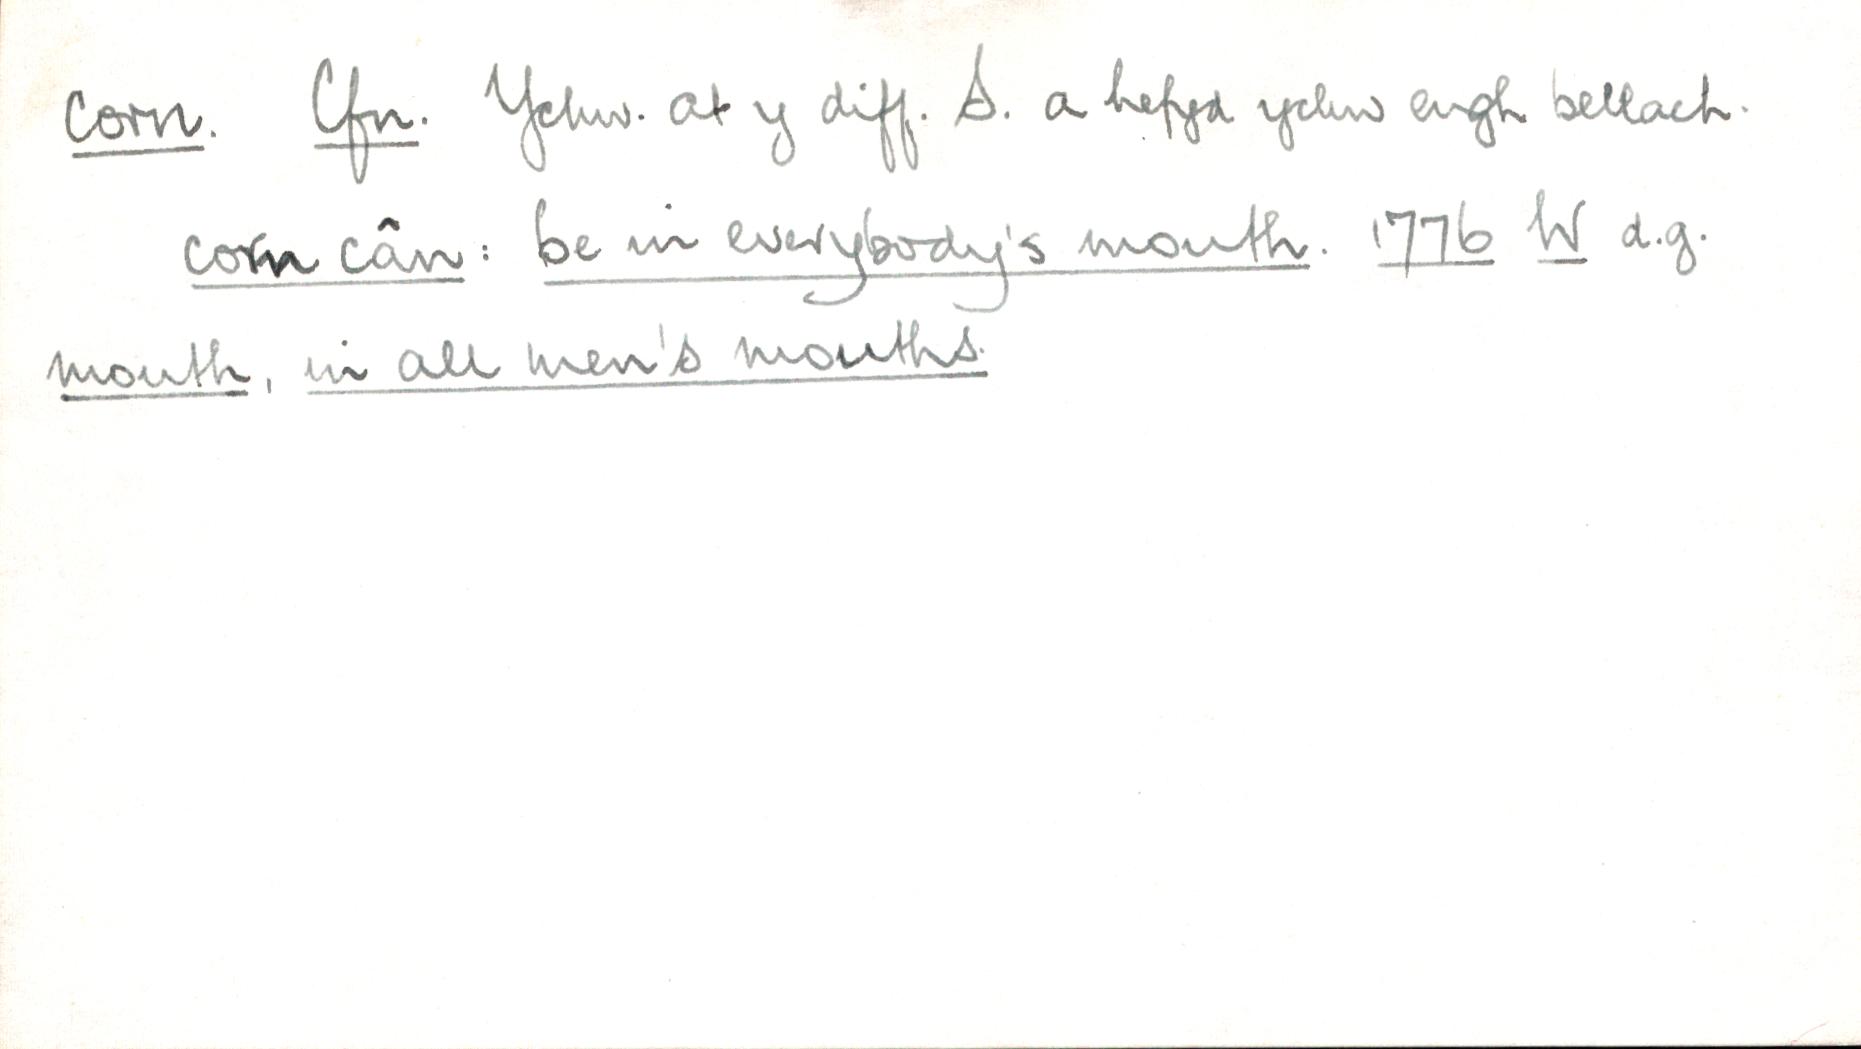 corn. Cfn. Ychw. at y diff. S. a hefyd ychw engh bellach.
corn cân: be in everybody's mouth. 1776 W d.g.
mouth, in all men's mouths.